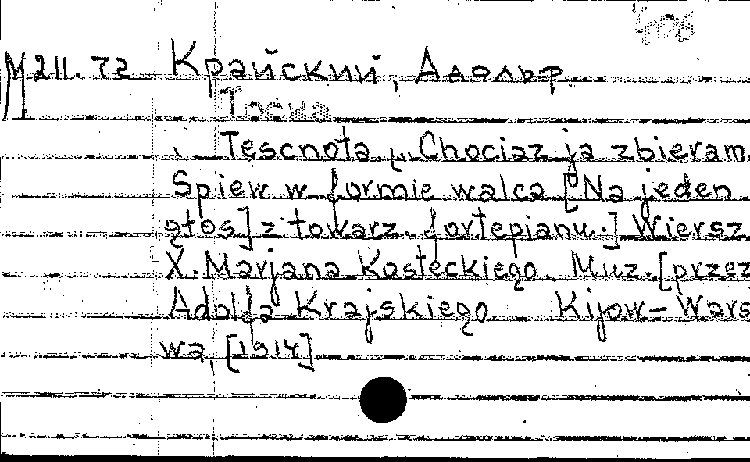 406
M 211.72 Крайский, Адольф
Тоска
Tęscnota „Chociaz ja zbieram
Spiew w formie walca [Na jeden
głos] z towarz. fortepianu.] Wiersz
X. Marjana Kosteckiego. Muz. [przez
Adolfa Krajskiego Kijow-Wars
wa, [1914]